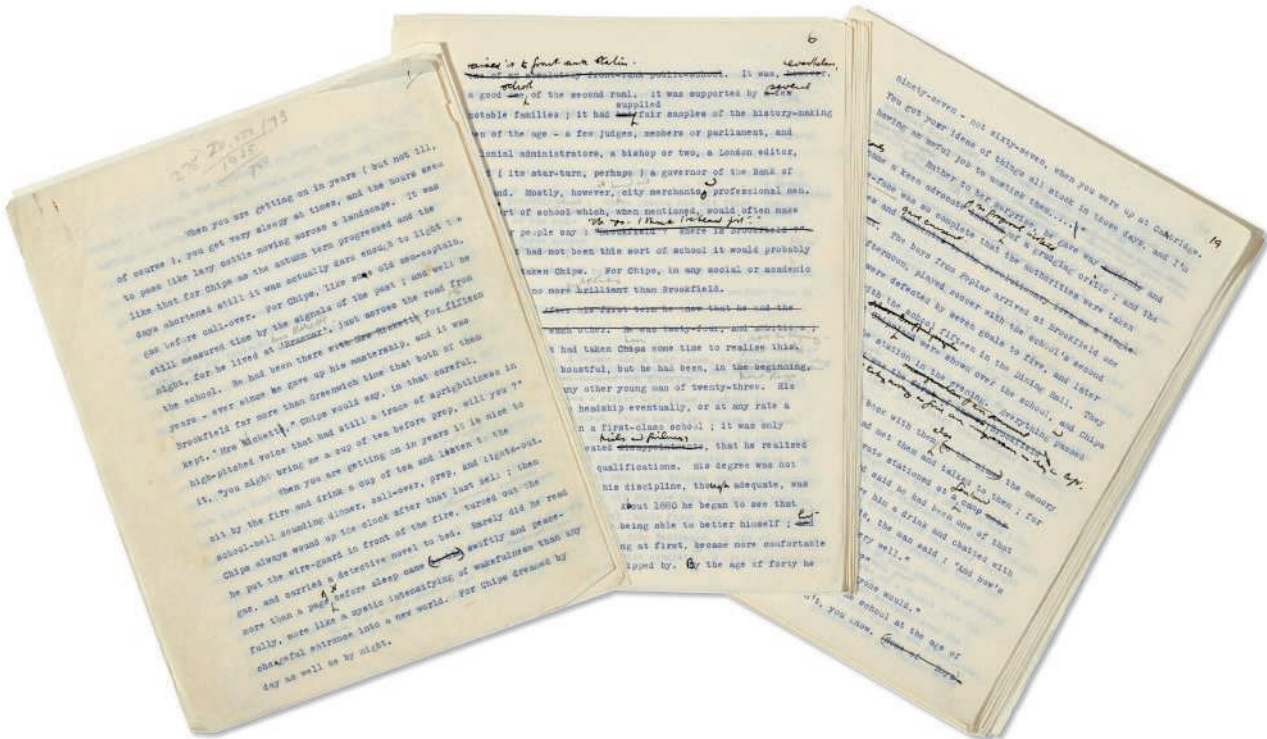 When you are getting on in years ( but not ill,
of course ), you get very sleepy at times, and the hours seem
to pass like lazy cattle moving across a landscape. It was
like that for Chips as the autumn term progressed and the
days shortened till it was actually dark enough to light the
gas before call-over. For Chips, like some old sea-captain,
still measured time by the signals of the past ; and well he
might, for he lived at
, just across the road from
the school. He had been there with Mrs Wickett for fifteen
years - ever since he gave up his mastership, and it was
Brookfield far more than Greenwich time that both of them
kept. "Mrs Wickett," Chips would say, in that careful,
high-pitched voice that had still a trace of sprightliness in
it, "you might bring me a cup of tea before prep, will you ?"
When you are getting on in years it is nice to
sit by the fire and drink a cup of tea and listen to the
school-bell sounding dinner, call-over, prep, and lights-out.
Chips always wound up the clock after that last bell ; then
he put the wire-guard in front of the fire, turned out the
gas, and carried a detective novel to bed. Rarely did he read
more than a page before sleep came swiftly and peace-
fully, more like a mystic intensifying of wakefulness than any
changeful entrance into a new world. For Chips dreamed by
day as well as by night.
6
front rank
absolutely front-rank public-school. It was,
school several
a good one of the second rank. It was supported by a few
supplied
notable families ; it had fair samples of the history-making
en of the age - a few judges, members of parliament, and
lonial administrators, a bishop or two, a London editor,
d ( its star-turn, perhaps ) a governor of the Bank of
and. Mostly, however, city merchants, professional men.
rt of school which, when mentioned, would often make
people say " Brookfield ? Where is Brookfield ?"
had not been this sort of school it would probably
taken Chips. For Chips, in any social or academic
no more brilliant than Brookfield.
his first term he saw that he and the
each other. He was twenty-four, and
t had taken Chips some time to realise this.
boastful, but he had been, in the beginning,
ny other young man of twenty-three. His
headship eventually, or at any rate a
n a first-class school ; it was only
trials and failures
eated disappointments, that he realized
qualifications. His degree was not
his discipline, though adequate, was
about 1880 he began to see that
being able to better himself ; but
ng at first, became more comfortable
ipped by. By the age of forty he
19
ninety-seven - not sixty-seven, when you were up at Cambridge.
You got your ideas of things all stuck in those days, and I'm
having an awful job to unstick them...."
Rather to his surprise, he gave way and
ame a keen advocate of a grudging critic ; and the
-face was so complete that the authorities were taken
The boys from Poplar arrived at Brookfield one
fternoon, played soccer with the school's second
were defeated by seven goals to five, and later
with the school fifteen in the Dining Hall. They
were shown over the school, and Chips
station in the evening. Everything passed
been with them
the memory
ad met them and talked to them ; for
ate stationed at a camp
said he had been one of that
ve him a drink and chatted with
t, the man said ; "And how's
ery well."
yone would."
school at the age of
't, you know.